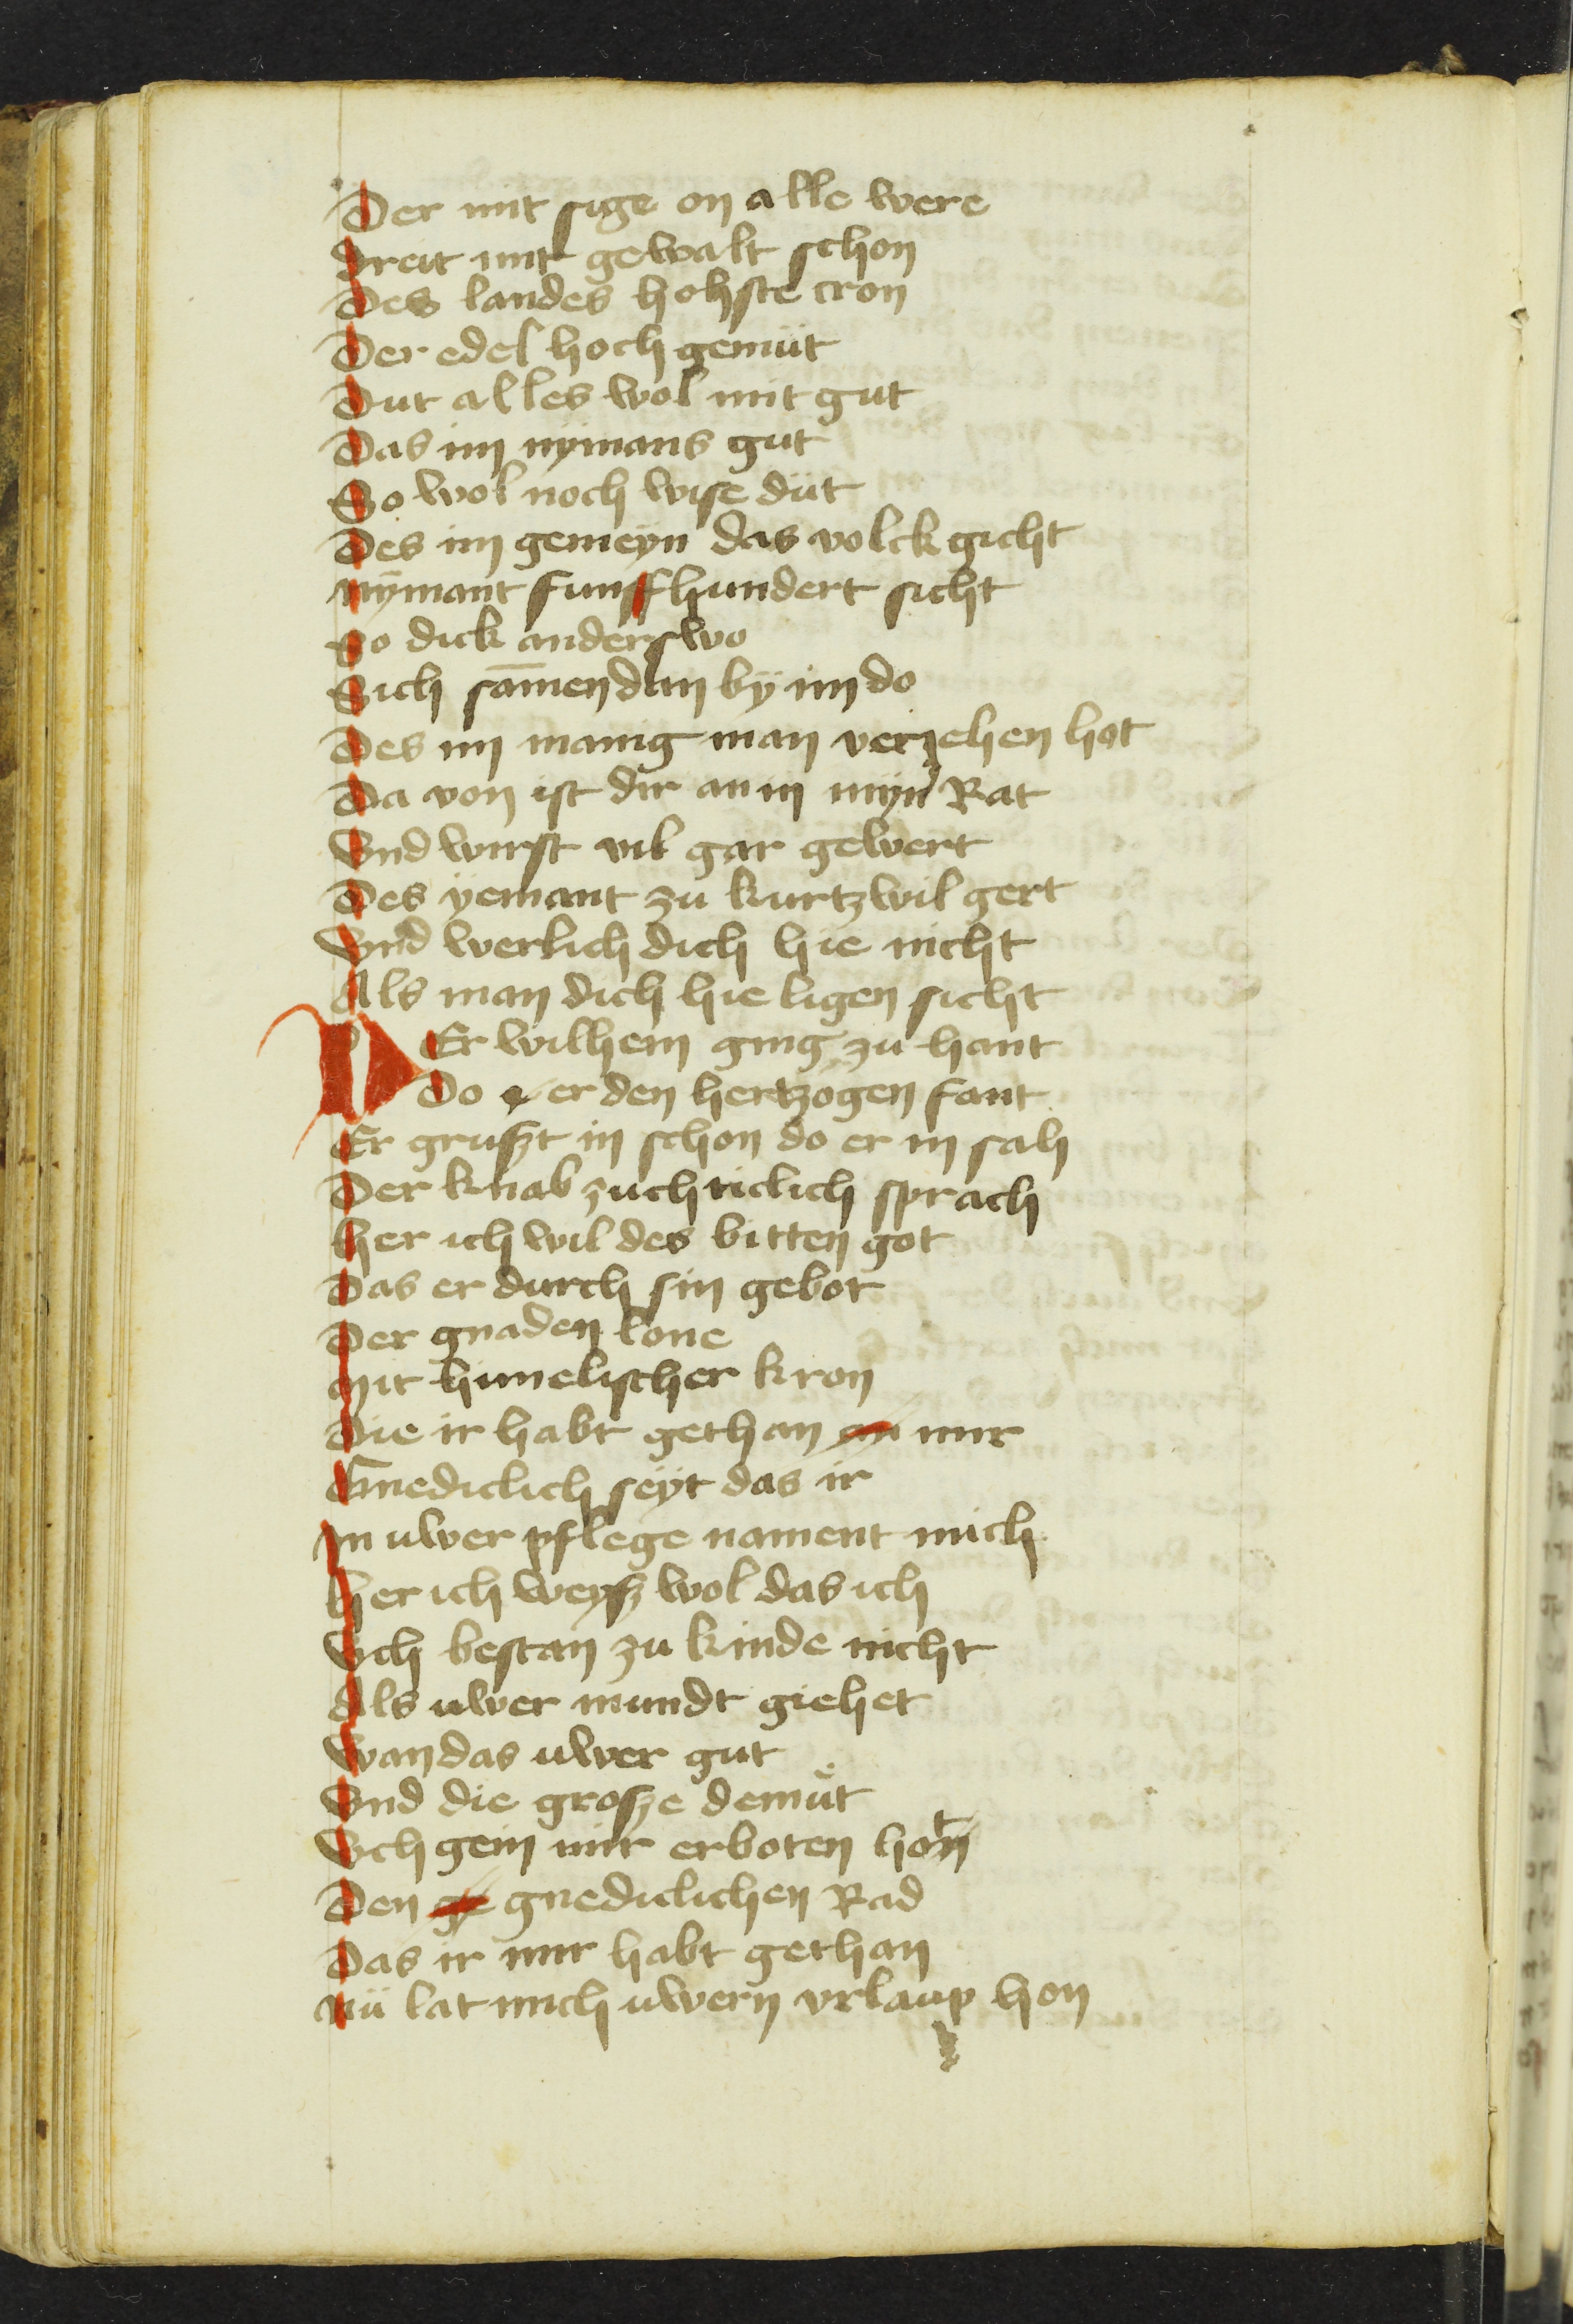 Der mit sige on alle were
Dreit mit gewalt schon
Des landes hohste cron
Der edel hoch gemüt
Dut alles wol mit gut
Das im nymans gut
So wol noch wise düt
Des im gemeyn das volck gicht
Nÿmant funffhundert sicht
So dick anderswo
Sich samen dan bÿ im do
Des im manig man veriehen hot
Da von ist dir an in myn Rat
Vnd wirst vil gar gewert
Des ÿemant zu kurtzwil gert
Vnd werlich dich hie nicht
Als man dich hie ligen sicht
DEr wilhem ging zu hant
Do er den hertzogen fant
Er gruszt in schon do er in sah
Der knab zuchticlich sprach
Her ich wil des bitten got
Das er durch sin gebot
Der gnaden lone
Mit himelischer kron
Die ir habt gethan an mir
Gnediclich seÿt das ir
In uwer pflege nament mich
Her ich weysz wol das ich
Vch bestan zu kinde nicht
Als uwer mundt giehet
Wan das uwer gut
Vnd die grosze demüt
Vch gein mir erboten hot
Den ge gnediclichen Rad
Das ir mir habt gethan
Nü lat mich uwern vrlaup hon